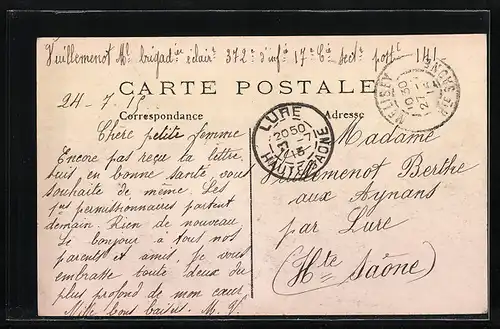 Vuillemenot Mce brigadier éclair 372e d'infie 17e Cie sectr postl 141
CARTE POSTALE
24-7.15
Correspondance
Adresse
LURE
20 50
-7
15
HAUTE SAONE
Chère petite femme
Encore pas reçu ta lettre.
suis en bonne santé, vous
souhaite de même. Les
1ers permissionnaires partent
demain. Rien de nouveau
Le bonjour à tous nos
parents et amis, je vous
embrasse toute deux du
plus profond de mon cœur
Mille bons baisers. M. V.
Madame
Vuillemenot Berthe
aux Aynans
par Lure
(Hte Saône)